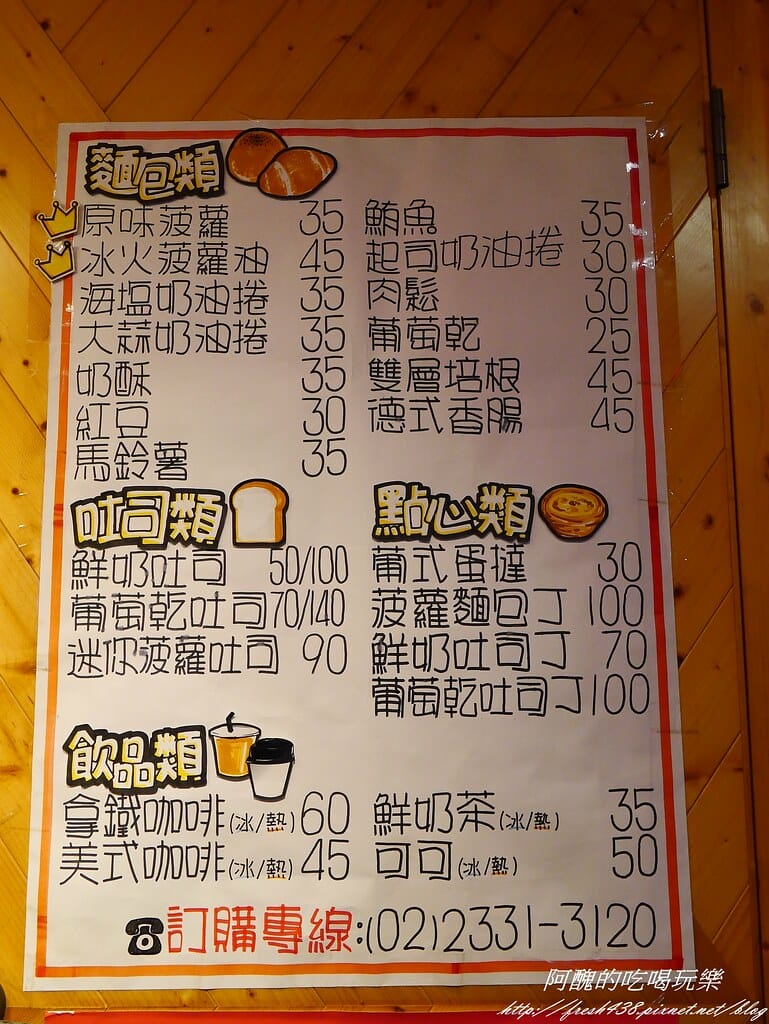 麵包類
原味菠蘿 35
冰火菠蘿油 45
海塩奶油捲 35
大蒜奶油捲 35
奶酥 35
紅豆 30
馬鈴薯 35
鮪魚 35
起司奶油捲 30
肉鬆 30
葡萄乾 25
雙層培根 45
德式香腸 45
吐司類
鮮奶吐司 50/100
葡萄乾吐司 70/140
迷你菠蘿吐司 90
點心類
葡式蛋撻 30
菠蘿麵包丁 100
鮮奶吐司丁 70
葡萄乾吐司丁 100
飲品類
拿鐵咖啡(冰/熱) 60
美式咖啡(冰/熱) 45
鮮奶茶(冰/熱) 35
可可(冰/熱) 50
訂購專線:(02)2331-3120
阿醜的吃喝玩樂
http://fresh438.pixnet.net/blog